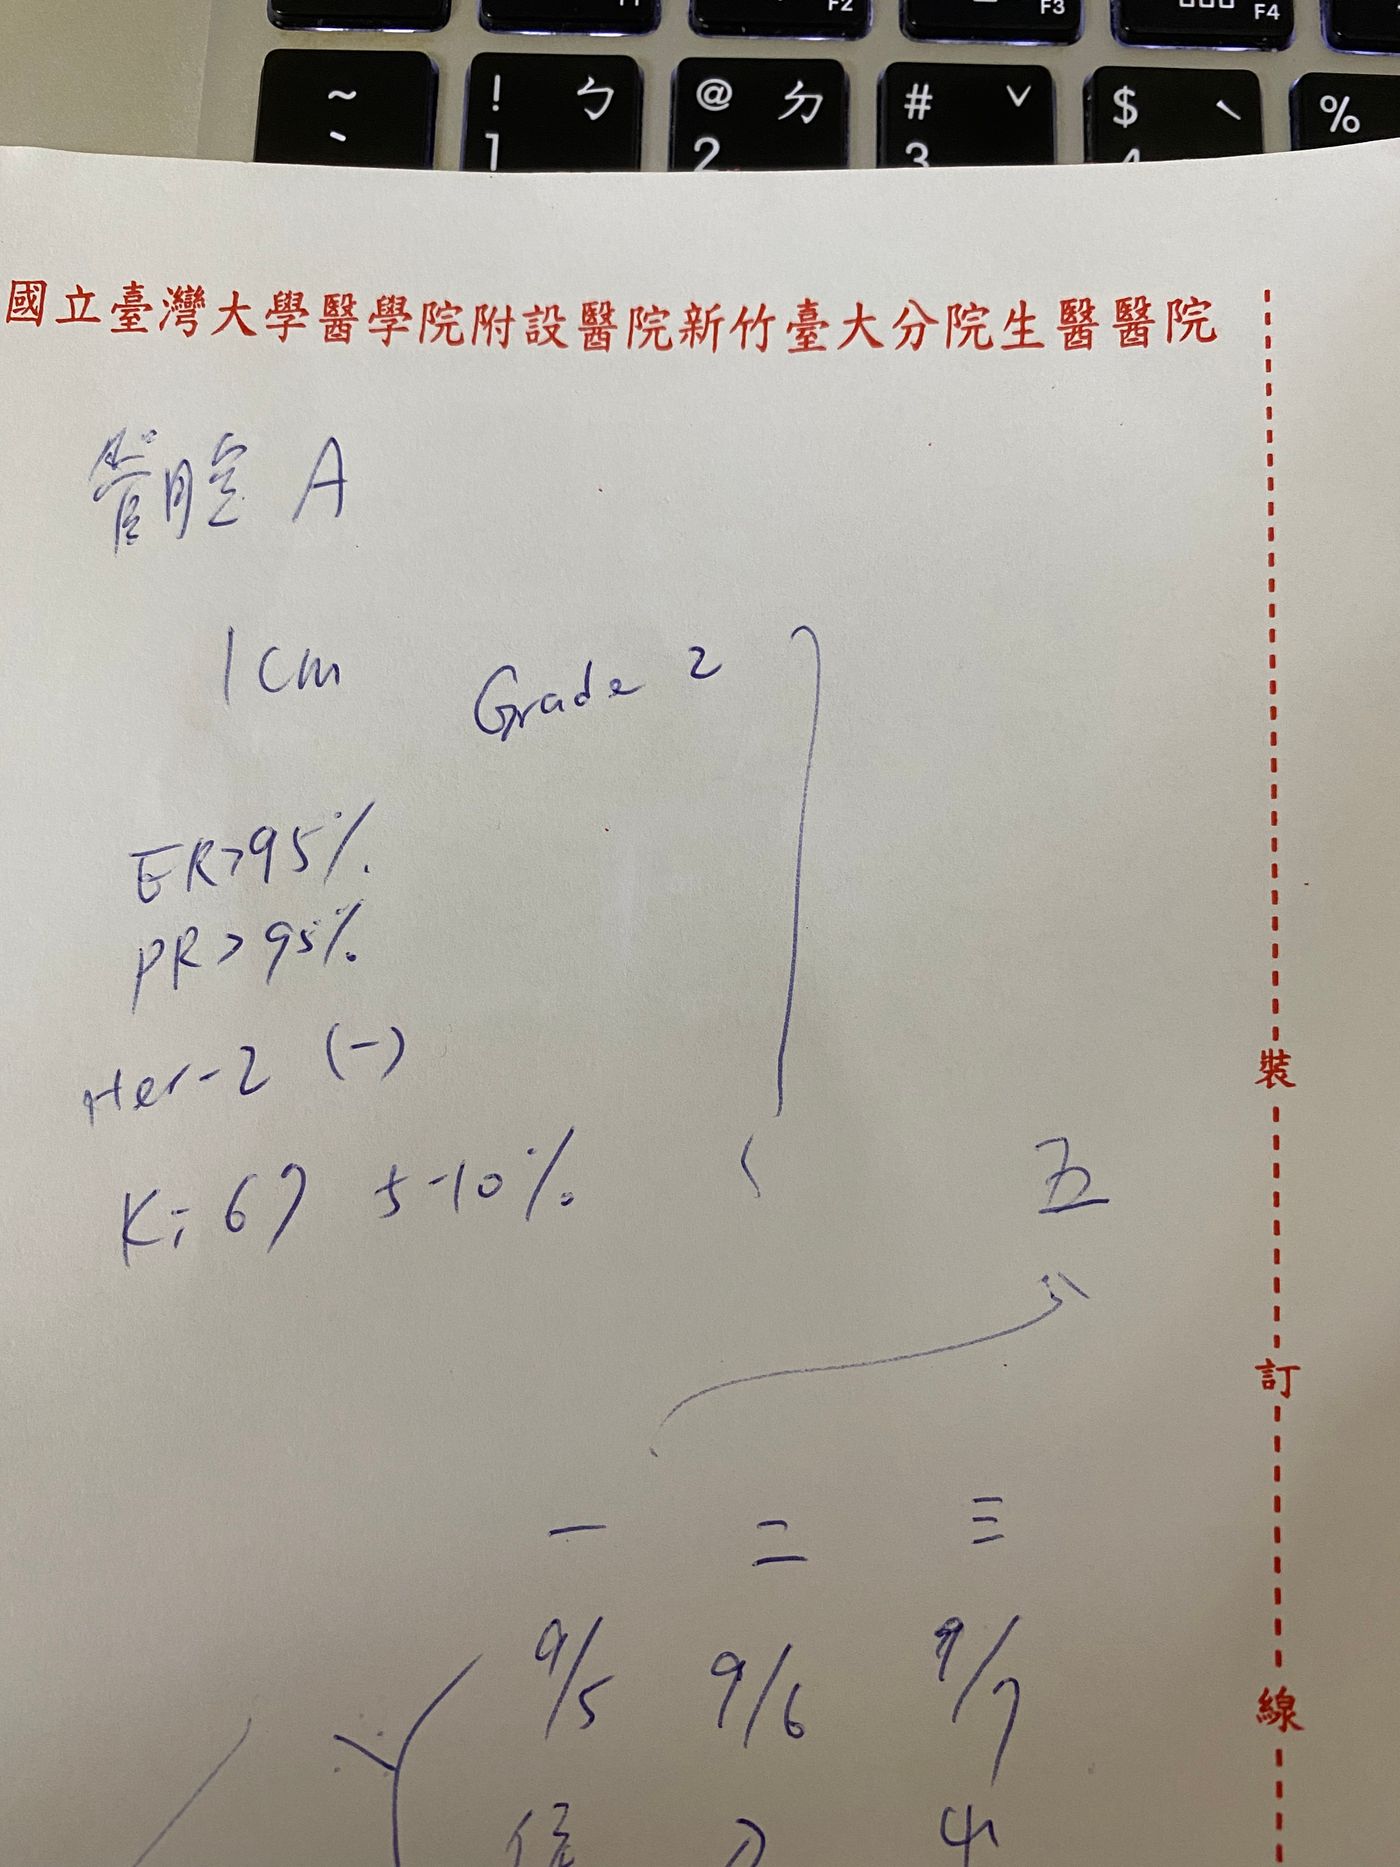 F2
F3
F4
~
`
! ㄅ
1
@ ㄉ
2
# ˇ
3
$ ˋ
4
%
國立臺灣大學醫學院附設醫院新竹臺大分院生醫醫院
管腔 A
1cm Grade 2
ER>95%
PR>95%
Her-2 (-)
Ki67 5-10%
五
一 二 三
9/5 9/6 9/7
住 刀 出
裝
訂
線